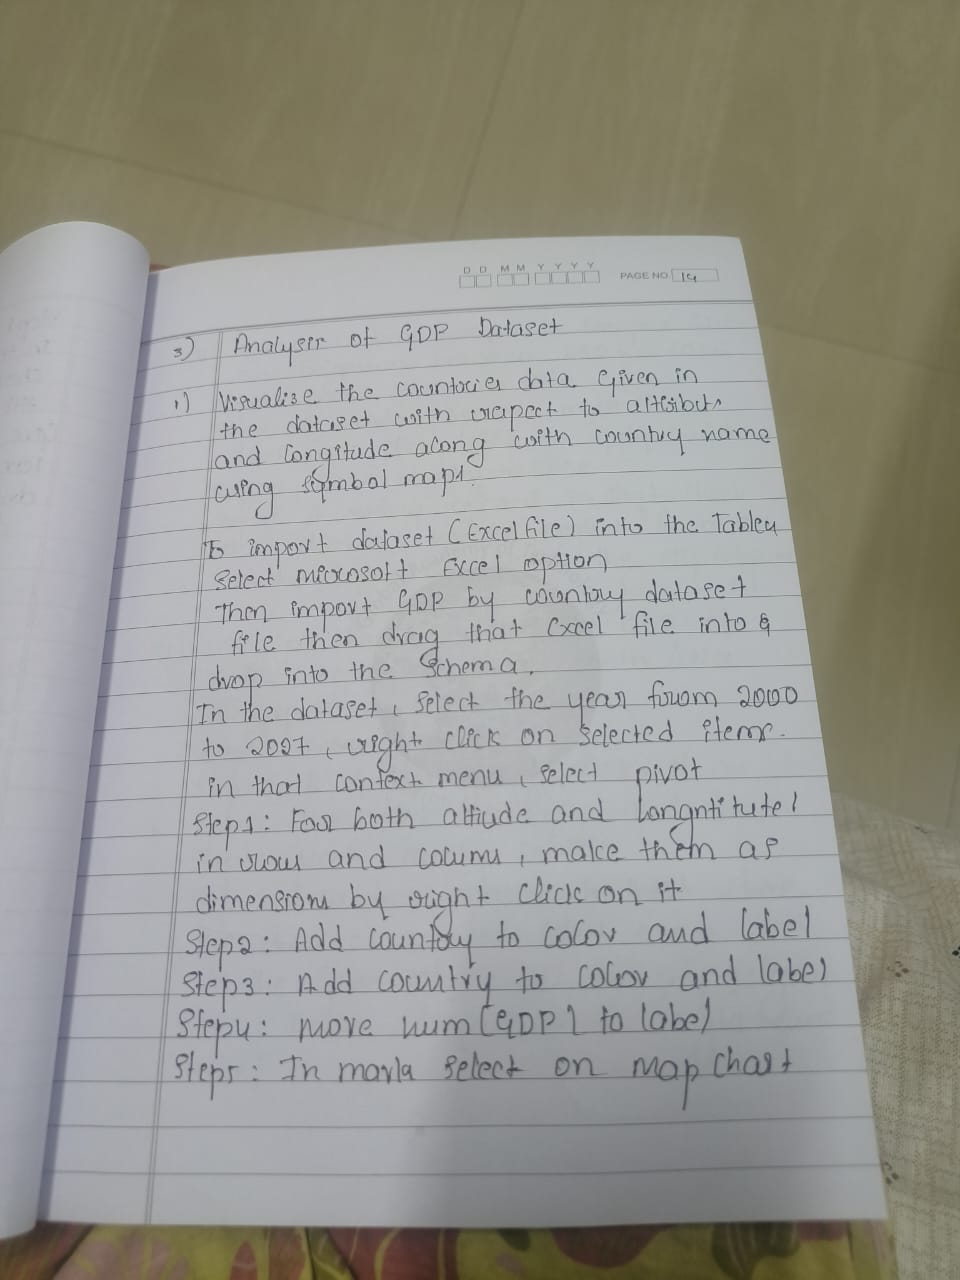 D D M M Y Y Y Y PAGE NO. 14
3) Analysis of GDP Dataset
1) Visualise the countries data given in
the dataset with respect to
and longitude along with country name
using symbol maps.
To import dataset (Excel file) into the Tableu
Select microsoft Excel option
Then import GDP by country dataset
file then drag that Excel file into &
drop into the Schema.
In the dataset, select the year from 2000
to 2027, right click on selected items.
in that context menu, select pivot
Step1: For both altiude and Longntitute
in rows and colums, make them as
dimensions by right click on it
Step2: Add country to color and label
Step3: Add country to color and label
Step4: move num [GDP] to label
Step5: In select on map chart